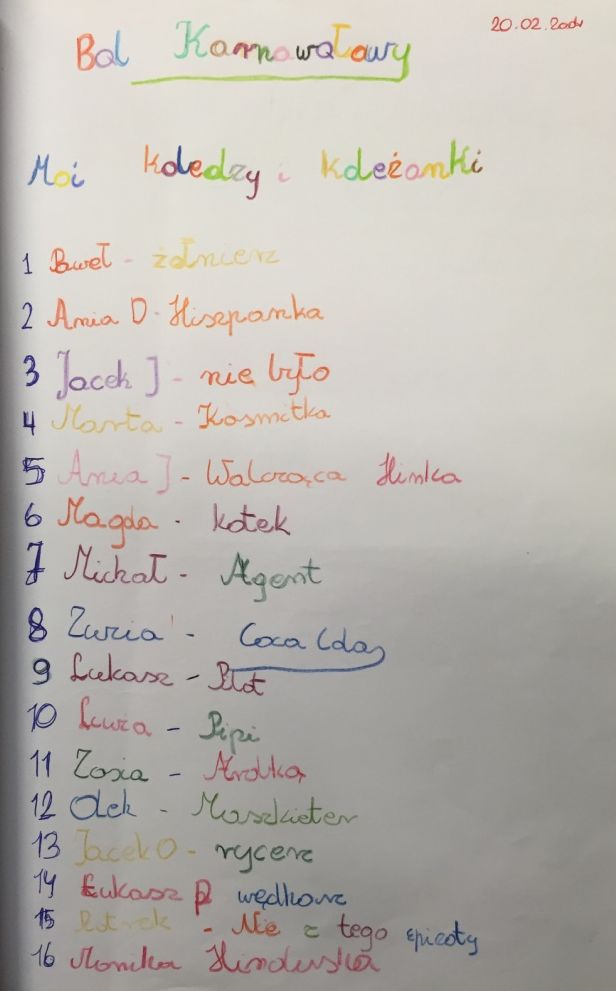 20.02.2004
Bal Karnawałowy
Moi koledzy i koleżanki
1 Paweł - żołnierz
2 Ania D - Hiszpanka
3 Jacek J - nie było
4 Marta - Kosmitka
5 Ania J - Walcząca Himka
6 Magda - kotek
7 Michał - Agent
8 Zuzia - Coca Cola
9 Łukasz - Pilot
10 Luiza - Pipi
11 Zosia - Arolka
12 Olek - Muszkieter
13 Jacek O - rycerz
14 Łukasz P wędkarz
15 Patryk - Nie z tego epicoty
16 Monika Hinduska